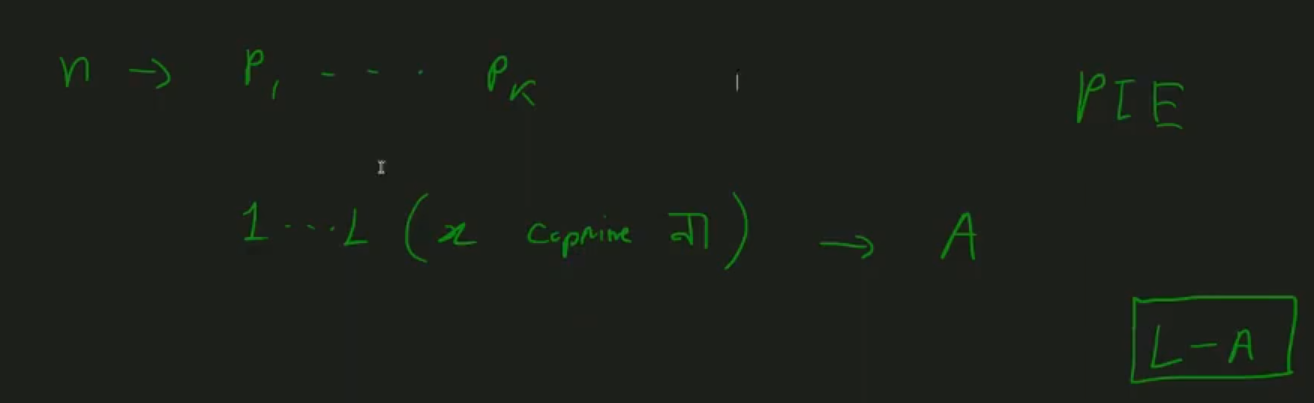 n → P₁ - - - . P_K
PIE
1...L (x coprime না) → A
L-A